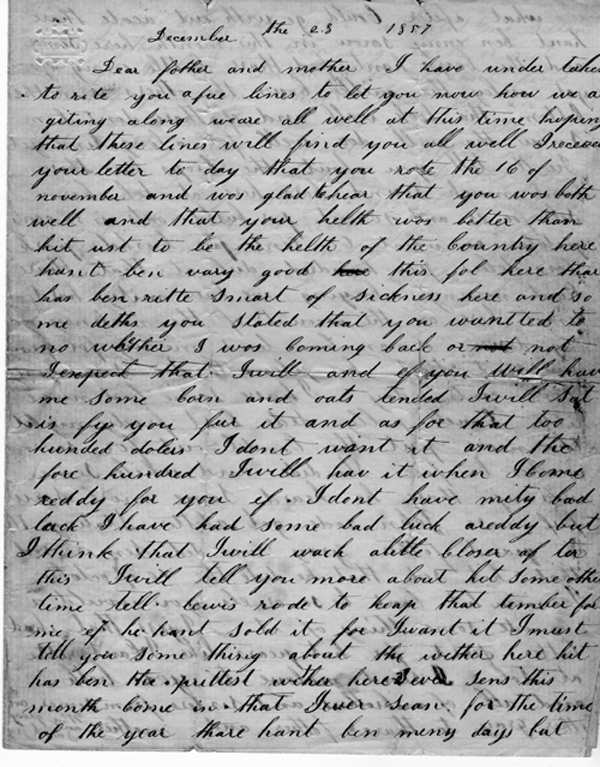 December the 28 1857
Dear father and mother I have under taken
to rite you a fue lines to let you now how we a
giting along weare all well at this time hoping
that these lines will find you all well I received
your letter to day that you rote the 16 of
november and was glad to hear that you was both
well and that your helth was better than
hit ust to be the helth of the Country here
hasnt ben vary good this fol here thar
has ben ritte smart of sickness here and so
me deths you stated that you wantted to
no whether I was Coming back or not not
I expect that I will and ef you will hav
me some Corn and oats tended I will sat
is fy you fur it and as for that too
hunded dolers I dont want it and the
fore hundred I will hav it when I Come
reddy for you ef I dont have mity bad
luck I have had some bad luck areddy but
I think that I will wach a litle Closer af ter
this I will tell you more about hit some other
time tell Lewis rode to keap that timber for
me ef he hant sold it for I want it I must
tell you some thing about the wether here hit
has ben the prittest wether here ever sens this
month Come in that I ever sean for the time
of the year thare hant ben meny days but